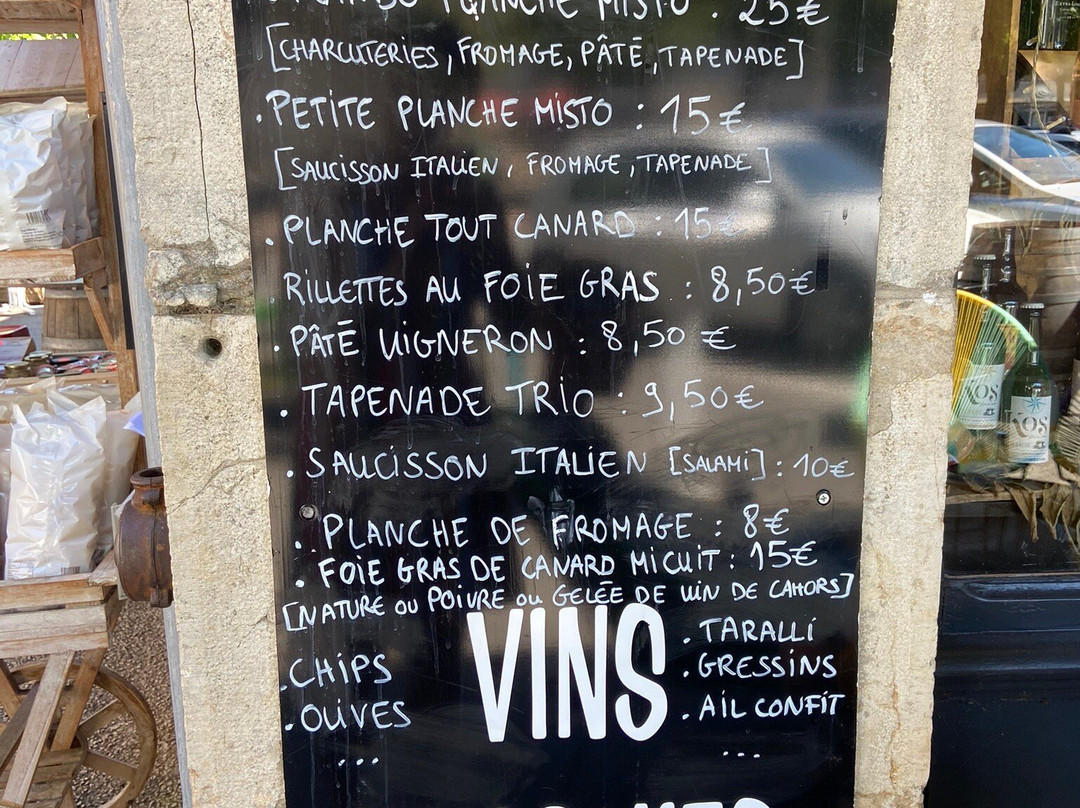 PLANCHE MISTO . 25€
[CHARCUTERIES, FROMAGE, PÂTÉ, TAPENADE]
. PETITE PLANCHE MISTO : 15€
[SAUCISSON ITALIEN, FROMAGE, TAPENADE]
. PLANCHE TOUT CANARD : 15€
. RILLETTES AU FOIE GRAS : 8,50€
. PÂTÉ VIGNERON : 8,50 €
. TAPENADE TRIO : 9,50€
. SAUCISSON ITALIEN [SALAMI] : 10€
. PLANCHE DE FROMAGE : 8€
. FOIE GRAS DE CANARD MICUIT : 15€
[NATURE OU POIVRE OU GELÉE DE VIN DE CAHORS]
VINS
. CHIPS
. OLIVES
...
. TARALLI
. GRESSINS
. AIL CONFIT
...
KOS
KOS